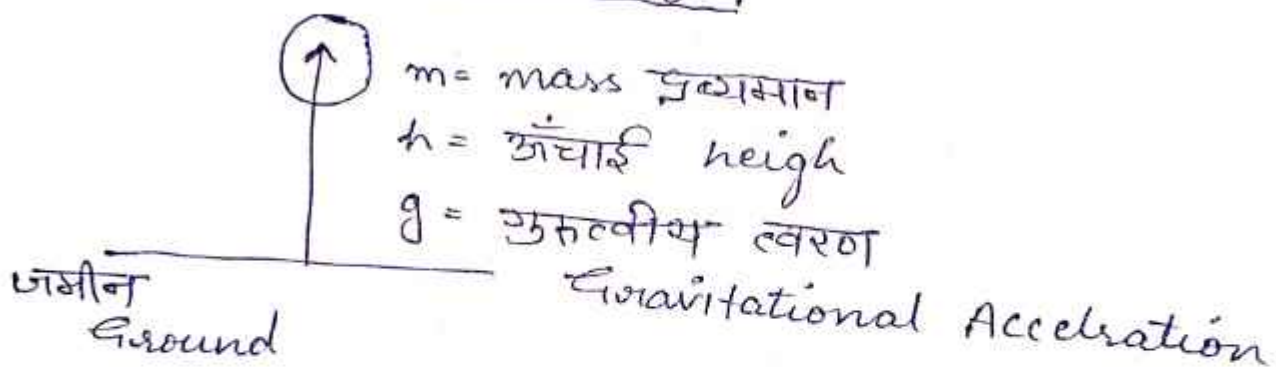 m = mass द्रव्यमान
h = ऊँचाई heigh
g = गुरुत्वीय त्वरण
Gravitational Accelration
जमीन
Ground